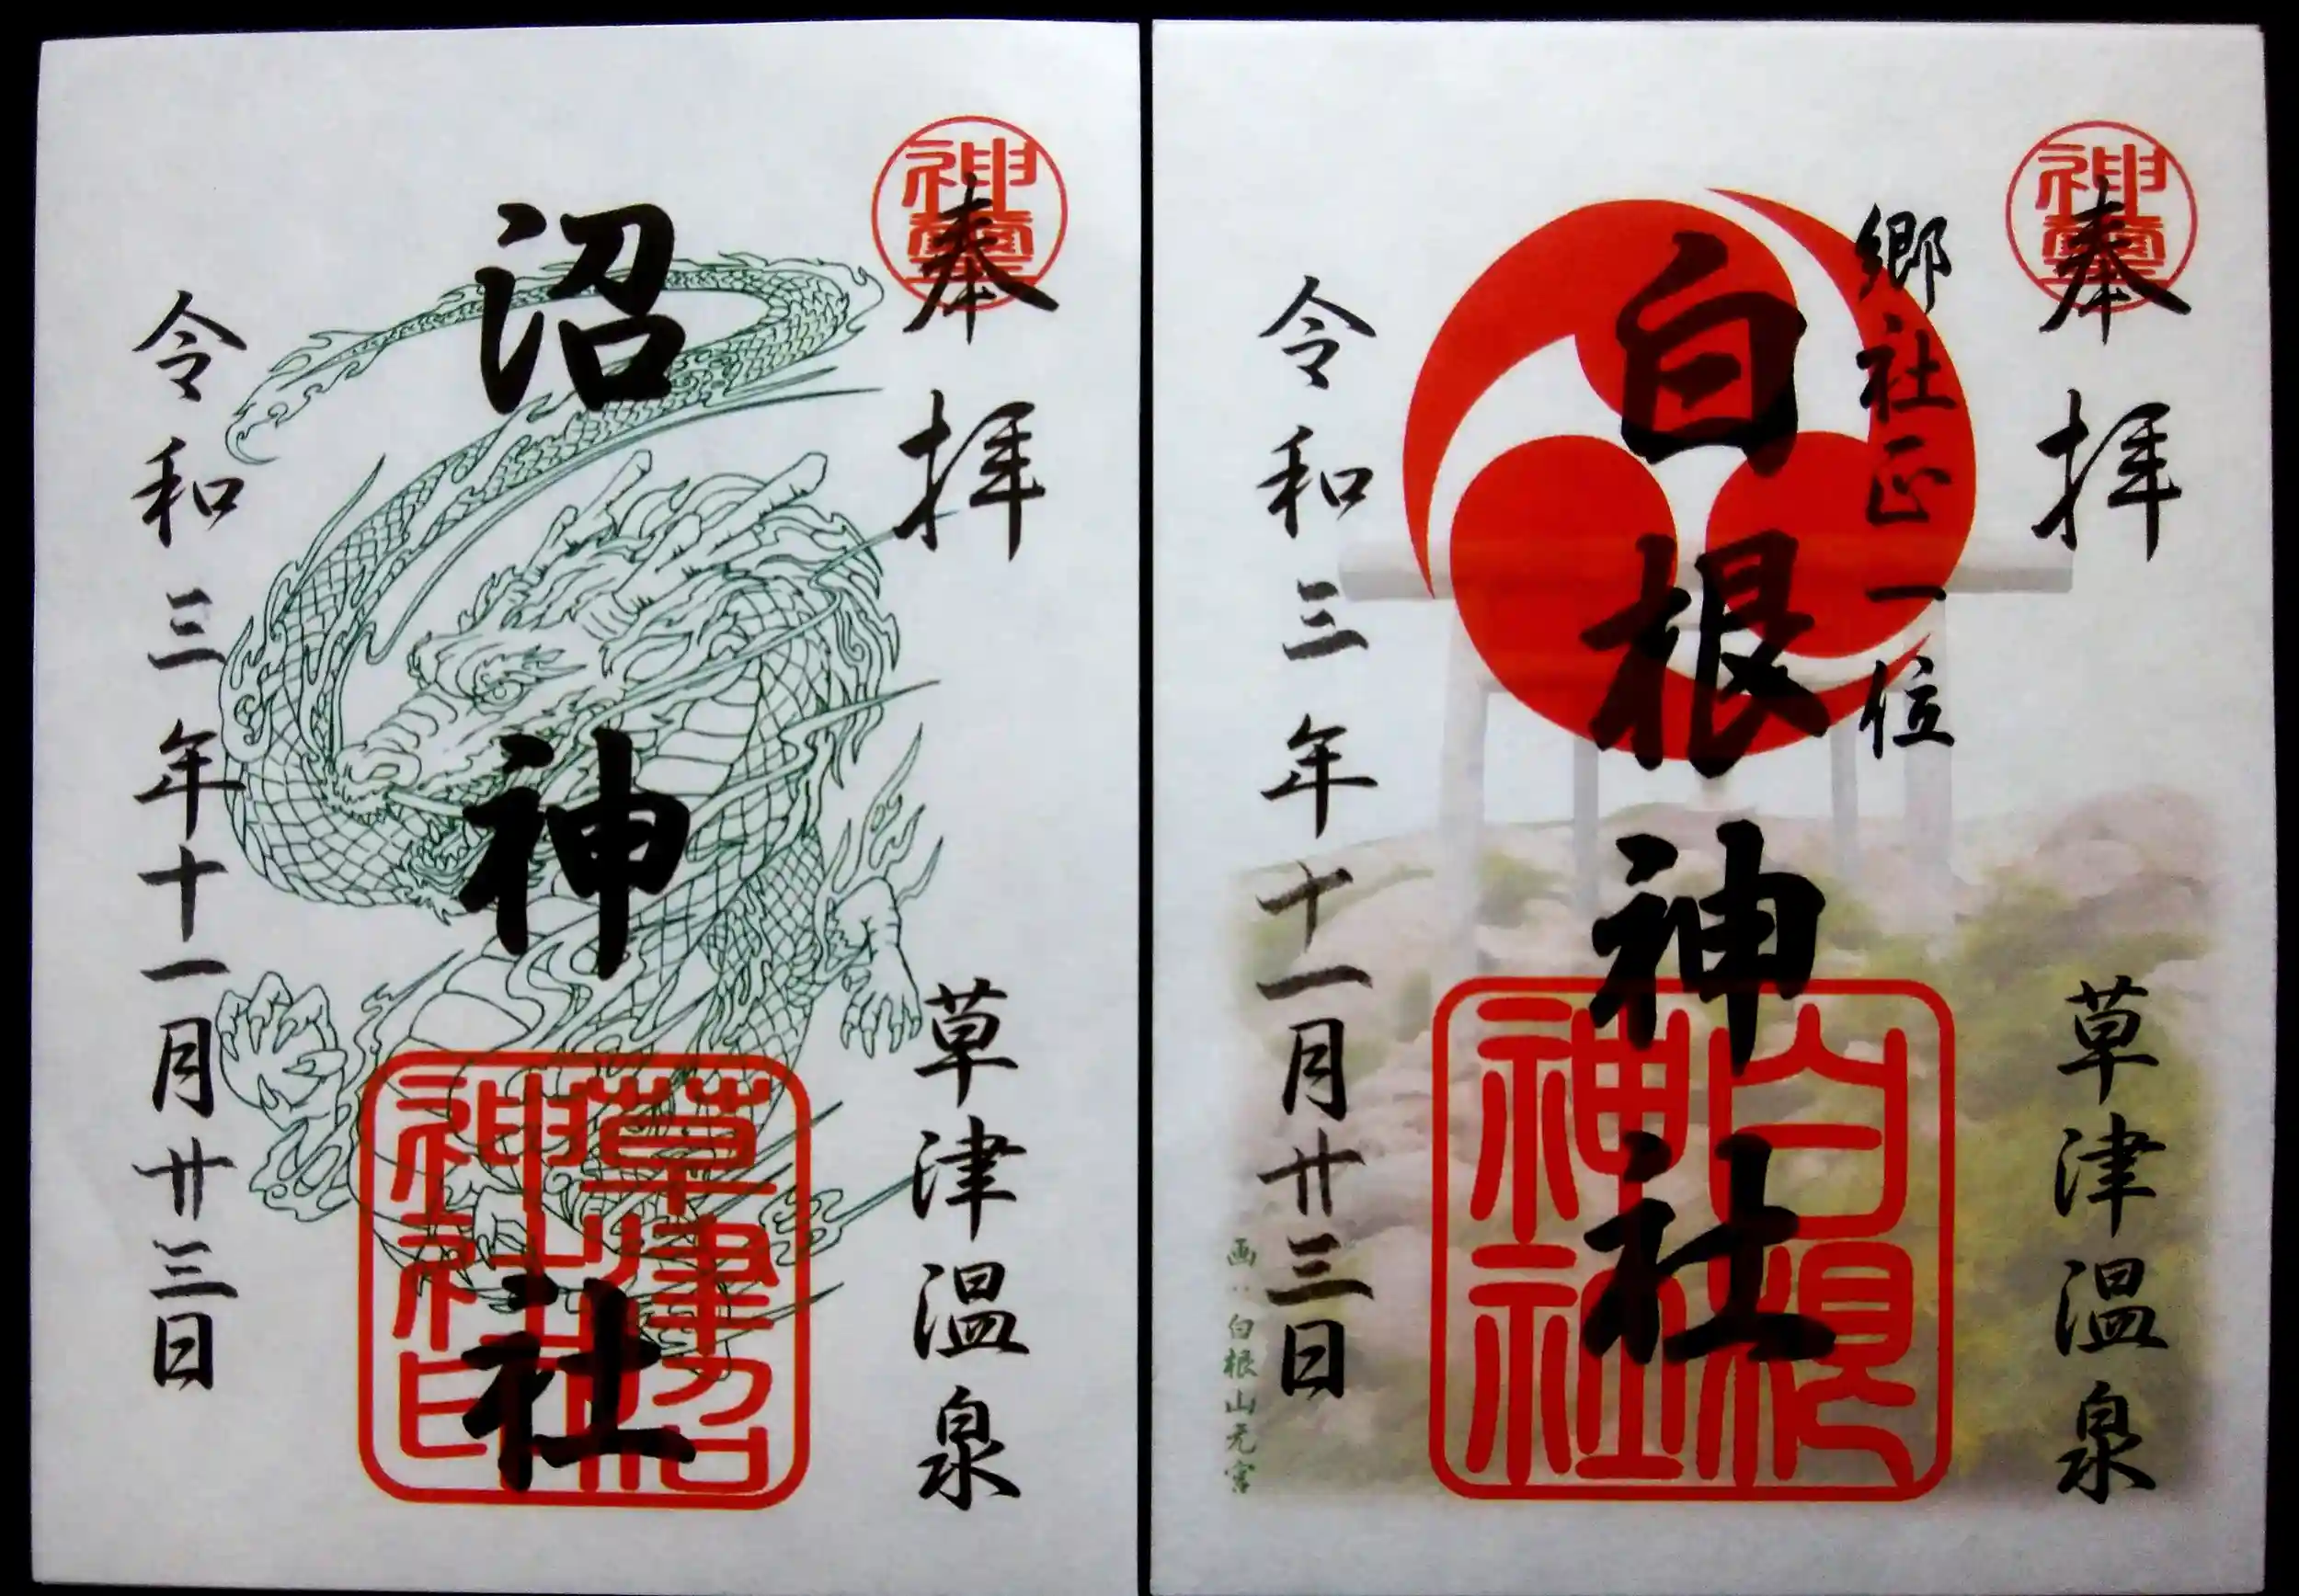 奉拝
郷社正一位
白根神社
令和三年十一月廿三日
草津温泉
白根神社
画:白根山元宮
神璽
奉拝
沼神社
令和三年十一月廿三日
草津温泉
草津沼神社印
神璽